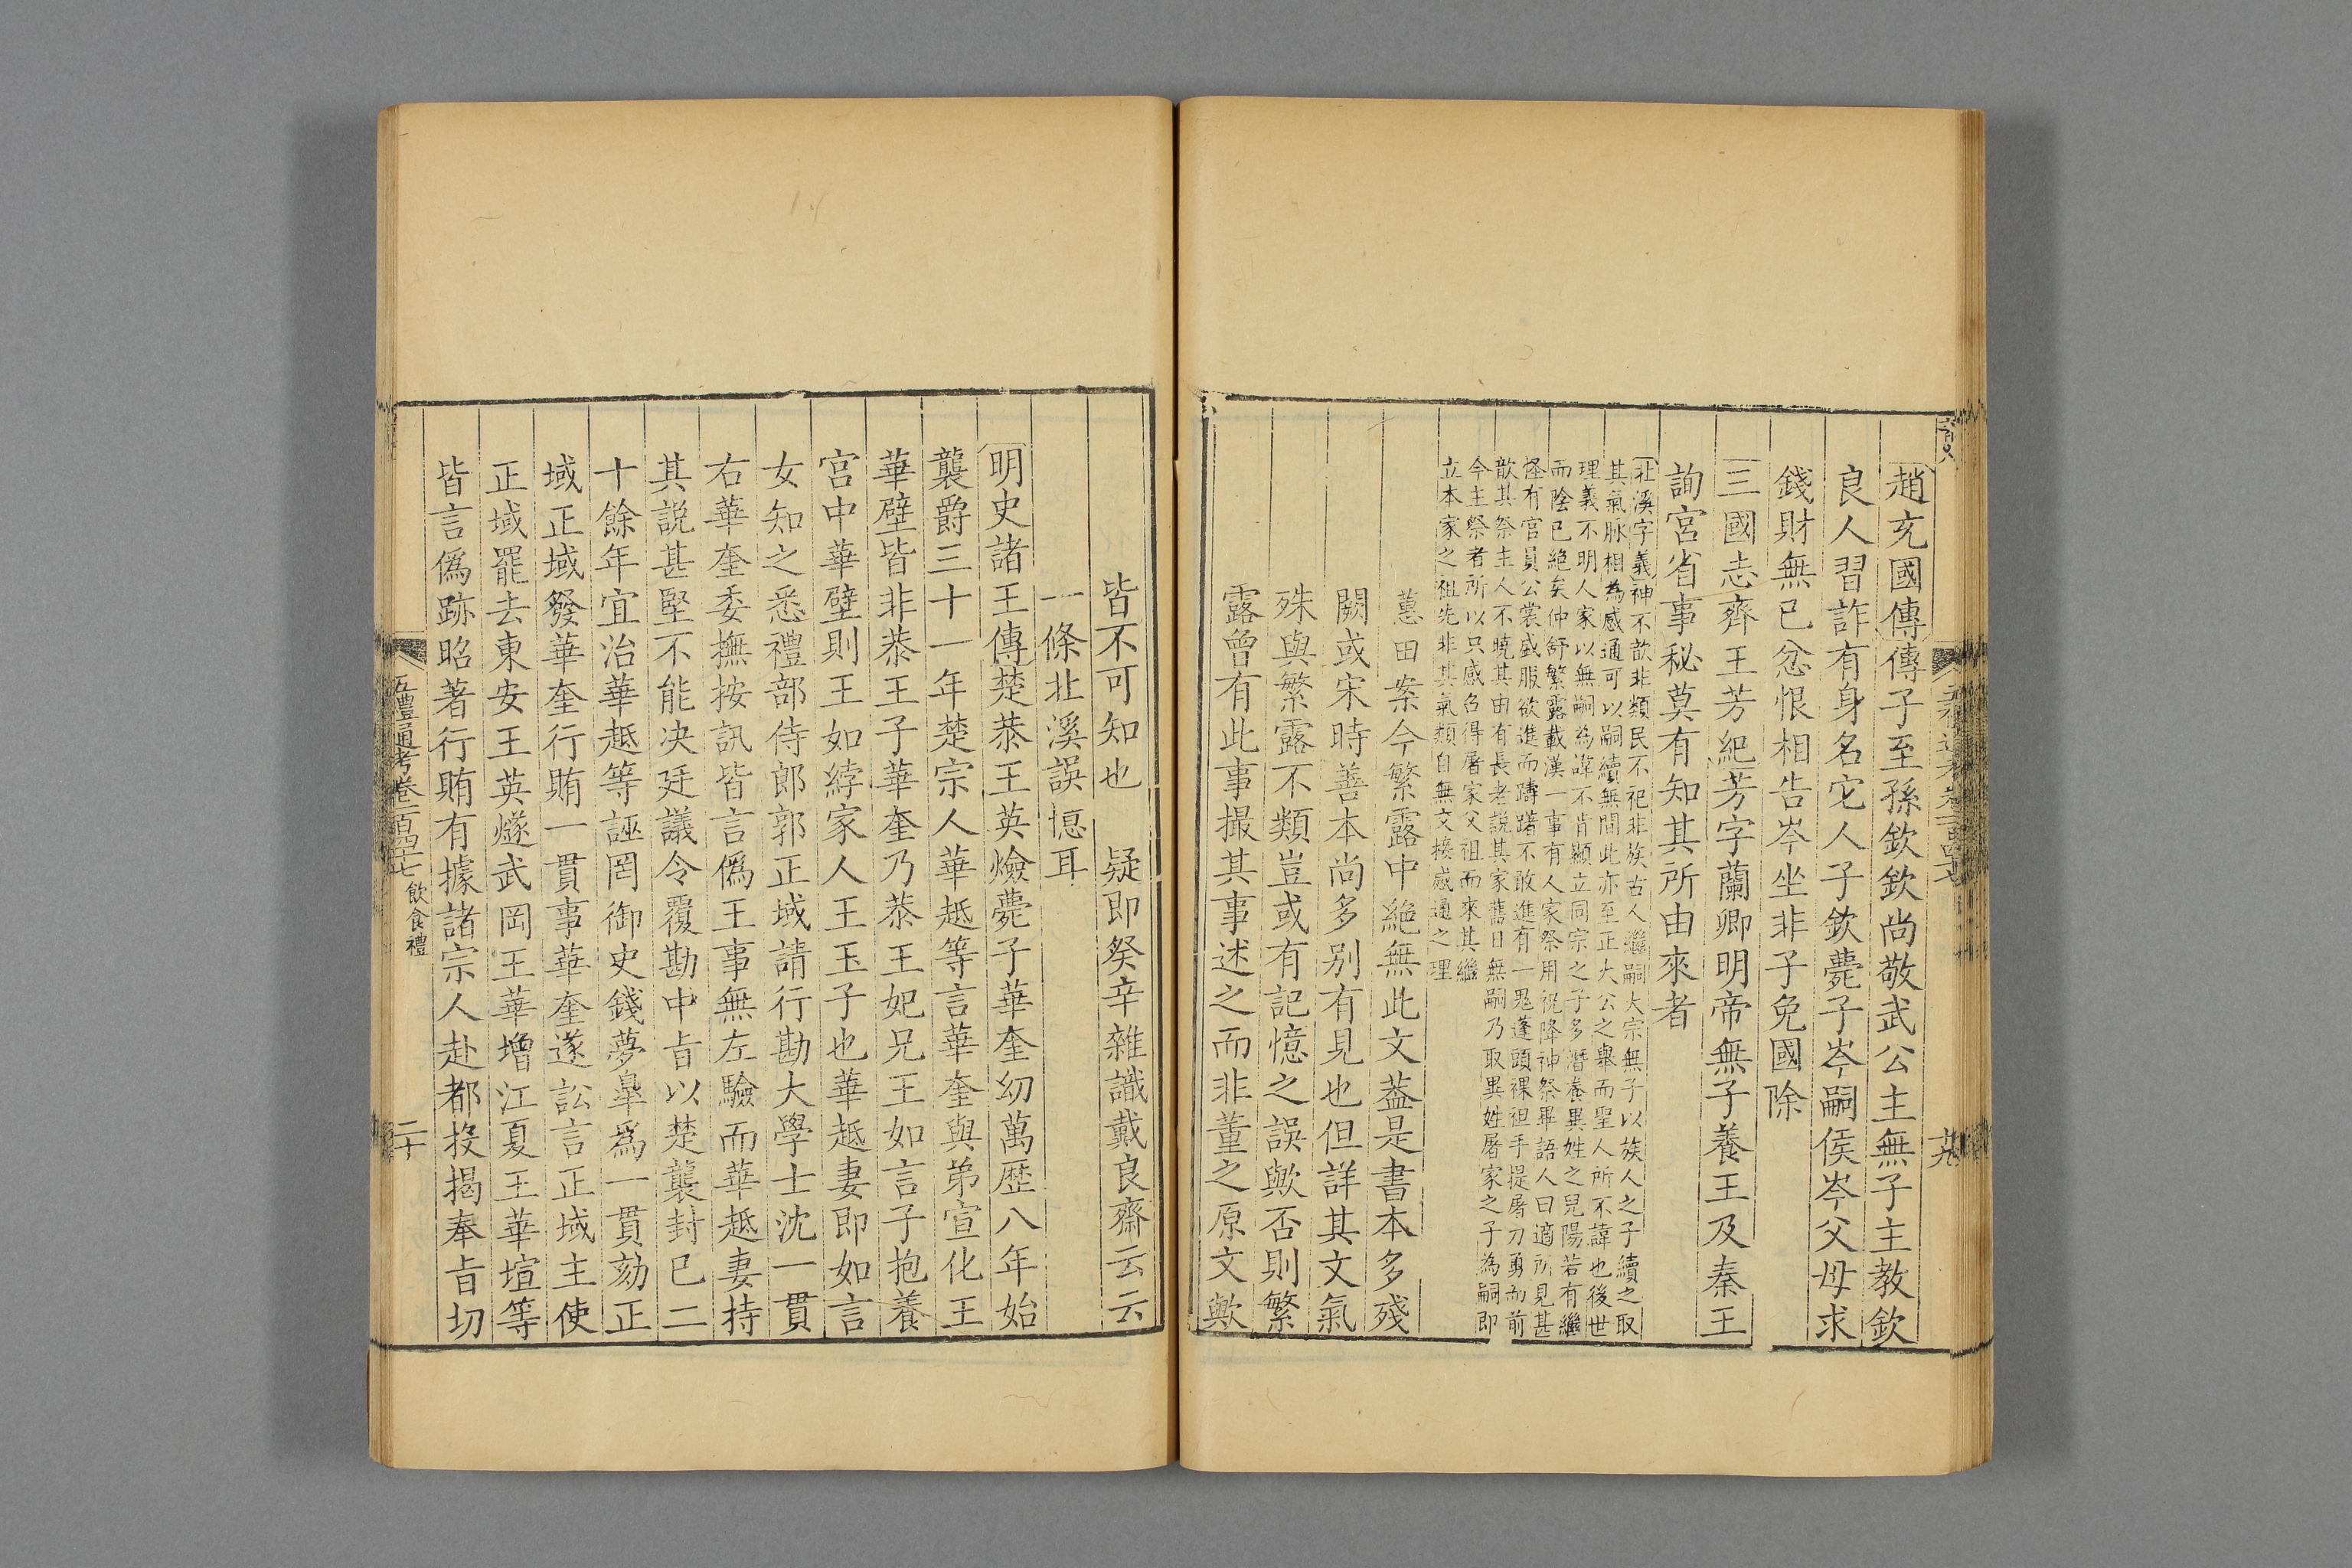 趙充國傳傳子至孫欽欽尚敬武公主無子主教欽
良人習詐有身名它人子欽薨子岑嗣侯岑父母求
錢財無已忿恨相告岑坐非子免國除
三國志齊王芳紀芳字蘭卿明帝無子養王及秦王
詢宮省事秘莫有知其所由來者
北溪字義神不歆非類民不祀非族古人繼嗣大宗無子以族人之子續之取
其氣脉相為感通可以嗣續無間此亦至正大公之舉而聖人所不諱也後世
理義不明人家以無嗣為諱不肯顯立同宗之子多潛養異姓之兒陽若有繼
而陰已絕矣仲舒繁露載漢一事有人家祭用祝降神祭畢語人曰適所見甚
怪有官員公裳盛服欲進而躊躇不敢進有一鬼蓬頭裸袒手提屠刀勇而前
歆其祭主人不曉其由有長老説其家舊日無嗣乃取異姓屠家之子為嗣即
今主祭者所以只感召得屠家父祖而來其繼
立本家之祖先非其氣類自無交接感通之理
蕙田案今繁露中絕無此文葢是書本多殘
闕或宋時善本尚多别有見也但詳其文氣
殊與繁露不類豈或有記憶之誤歟否則繁
露曾有此事撮其事述之而非董之原文歟
十九
皆不可知也 疑即癸辛雜識戴良齋云云
一條北溪誤憶耳
明史諸王傳楚恭王英㷿薨子華奎幼萬歷八年始
襲爵三十一年楚宗人華趆等言華奎與弟宣化王
華壁皆非恭王子華奎乃恭王妃兄王如言子抱養
宫中華壁則王如綍家人王玉子也華趆妻即如言
女知之悉禮部侍郎郭正域請行勘大學士沈一貫
右華奎委撫按訊皆言偽王事無左驗而華趆妻持
其説甚堅不能决廷議令覆勘中㫖以楚襲封已二
十餘年宜治華趆等誣罔御史錢夢皐爲一貫劾正
域正域發華奎行賄一貫事華奎遂訟言正域主使
正域罷去東安王英燧武岡王華增江夏王華塇等
皆言僞跡昭著行賄有據諸宗人赴都投揭奉㫖切
五禮通考卷一百四十七 飲食禮
二十